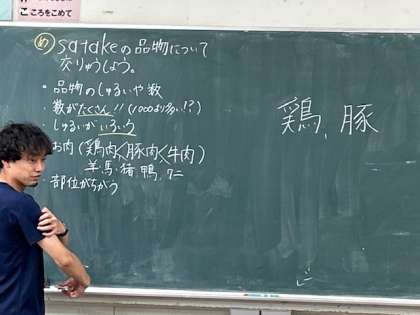 こころをこめて
め satakeの品物について
交りゅうしよう。
・品物のしゅるいや数
・数がたくさん!! (1000より多い!?)
・しゅるいがいろいろ
お肉 (鶏肉<豚肉<牛肉)
羊・馬・猪・鴨、ワニ
・部位がちがう
鶏、豚